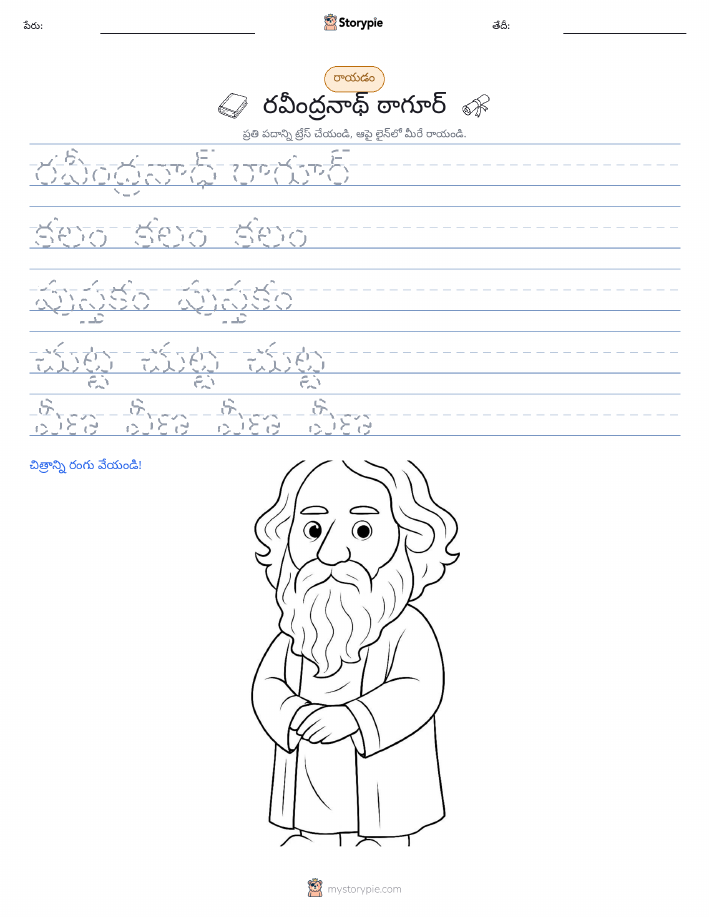 పేరు:
Storypie
తేదీ:
రాయడం
రవీంద్రనాథ్ ఠాగూర్
ప్రతి పదాన్ని ట్రేస్ చేయండి, ఆపై లైన్‌లో మీరే రాయండి.
రవీంద్రనాథ్ ఠాగూర్
కలం కలం కలం
పుస్తకం పుస్తకం
చుట్ట చుట్ట చుట్ట
వీణ వీణ వీణ వీణ
చిత్రాన్ని రంగు వేయండి!
mystorypie.com